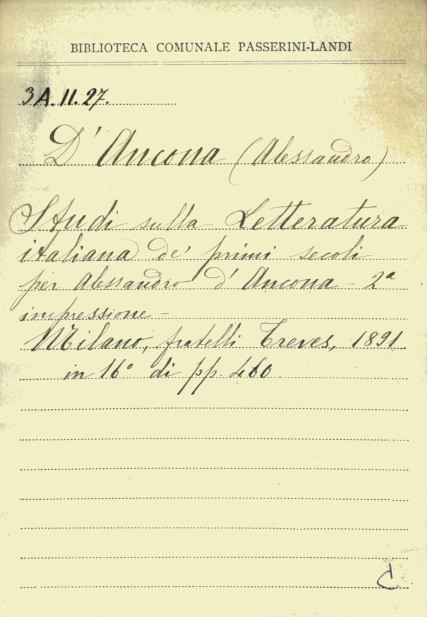 BIBLIOTECA COMUNALE PASSERINI-LANDI
3A.11.27.
D'Ancona (Alessandro)
Studi sulla Letteratura
italiana de' primi secoli
per Alessandro d'Ancona - 2ª
impressione -
Milano, fratelli Treves, 1891
in 16° di pp. 460
C